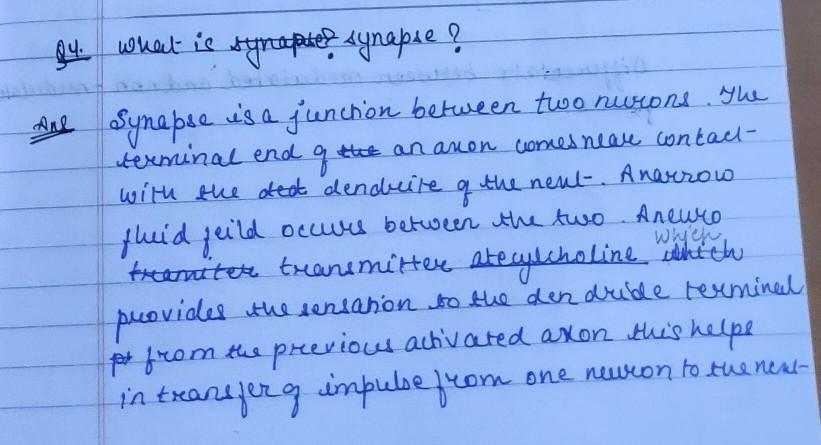 Q4. What is synapse? synapse?
Ans Synapse is a junction between two nurons. The
terminal end of the an axon comes near contact
with the ded dendrite of the next. A narrow
fluid feild occurs between the two. A neuro
which
tramiter transmitter atecylcholine which
provides the sensation to the dendride terminal
from the previous activated axon this helps
in transfer of impulse from one neuron to the next